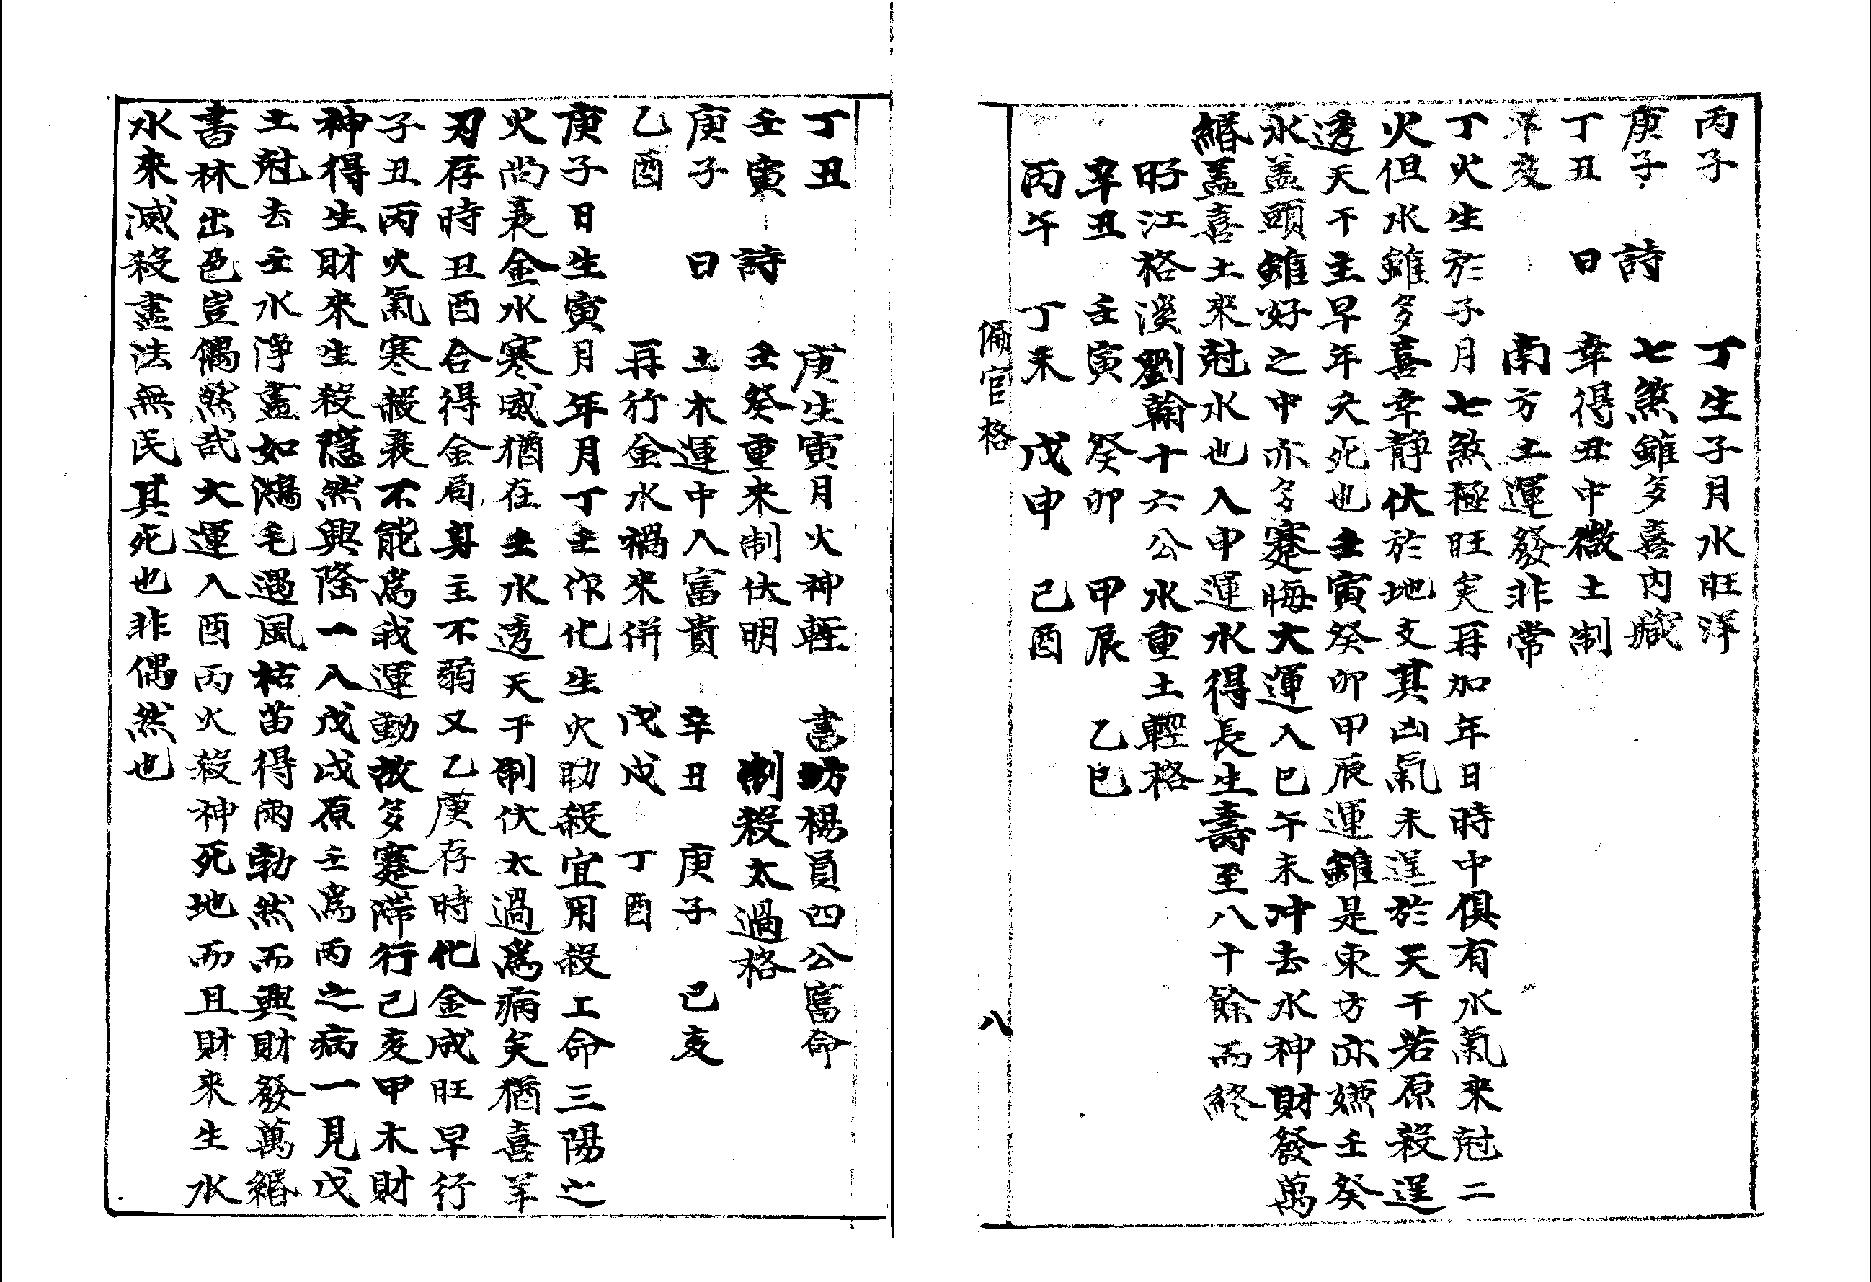 丙子　丁生子月水旺洋
庚子　詩　七煞雖多喜内藏
丁丑　日　幸得丑中微土制
辛亥　南方土運發非常
丁火生於子月七煞極旺矣再加年日時中俱有水氣來尅二
火但水雖多喜幸靜伏於地支其凶氣未逞於天干若原殺逞
透天干主早年夭死也壬寅癸卯甲辰運雖是東方亦嫌壬癸
水盖頭雖好之中亦多蹇晦大運入巳午未冲去水神財發萬
緡盖喜土來尅水也入申運水得長生壽至八十餘而終
旴江格溪劉翰十六公水重土輕格
辛丑　壬寅　癸卯　甲辰　乙巳
丙午　丁未　戊申　己酉
偏官格　八
丁丑　庚生寅月火神輕　書坊楊員四公富命
壬寅　詩　壬癸重來制伏明　制殺太過格
庚子　日　土木運中入富貴　辛丑　庚子　己亥
乙酉　再行金水禍來併　戊戌　丁酉
庚子日生寅月年月丁壬作化生火助殺宜用殺工命三陽之
火尚衰金水寒威猶在壬水透天干制伏太過為病矣猶喜羊
刃存時丑酉合得金局身主不弱又乙庚存時化金成旺早行
子丑丙火氣寒殺衰不能為我運動故多蹇滯行己亥甲木財
神得生財來生殺隱然興隆一入戊戌原壬為丙之病一見戊
土尅去壬水淨盡如鴻毛遇風枯苗得雨勃然而興財發萬緡
書林出色豈偶然哉大運入酉丙火殺神死地而且財來生水
水來滅殺盡法無民其死也非偶然也